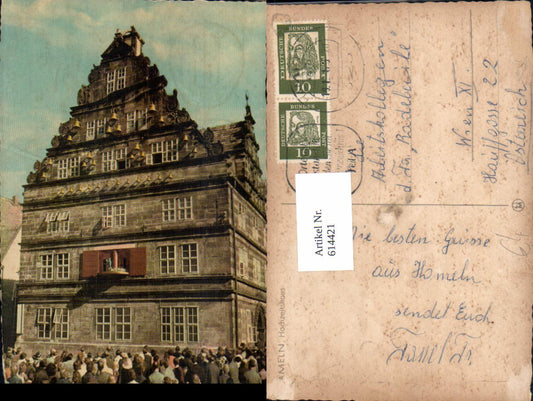 DEUTSCHE BUNDESPOST
10
DEUTSCHE BUNDESPOST
10
Arbeitskollegen
d. Fa.
Wien XI
Hauffgasse 22
Österreich
Artikel Nr.
614421
Die besten Grüsse
aus Hameln
sendet Euch
Fam.
HAMELN, Hochzeitshaus